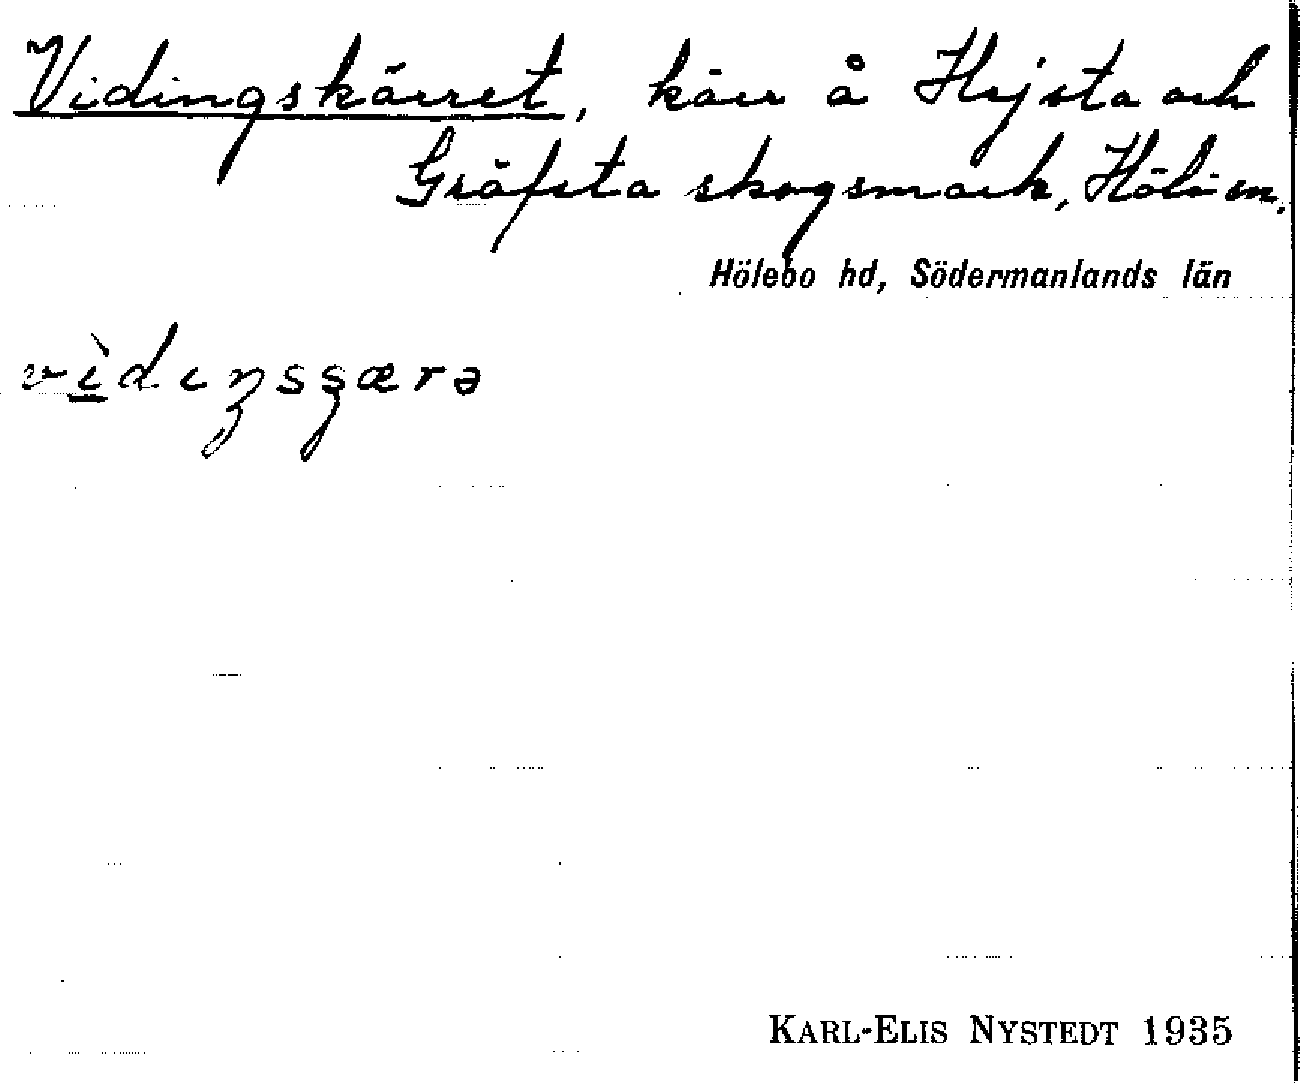 Vidingskärret, kärr å Hejsta och
Gräfsta skogsmark, Hölö sn.
Hölebo hd, Södermanlands län
KARL-ELIS NYSTEDT 1935